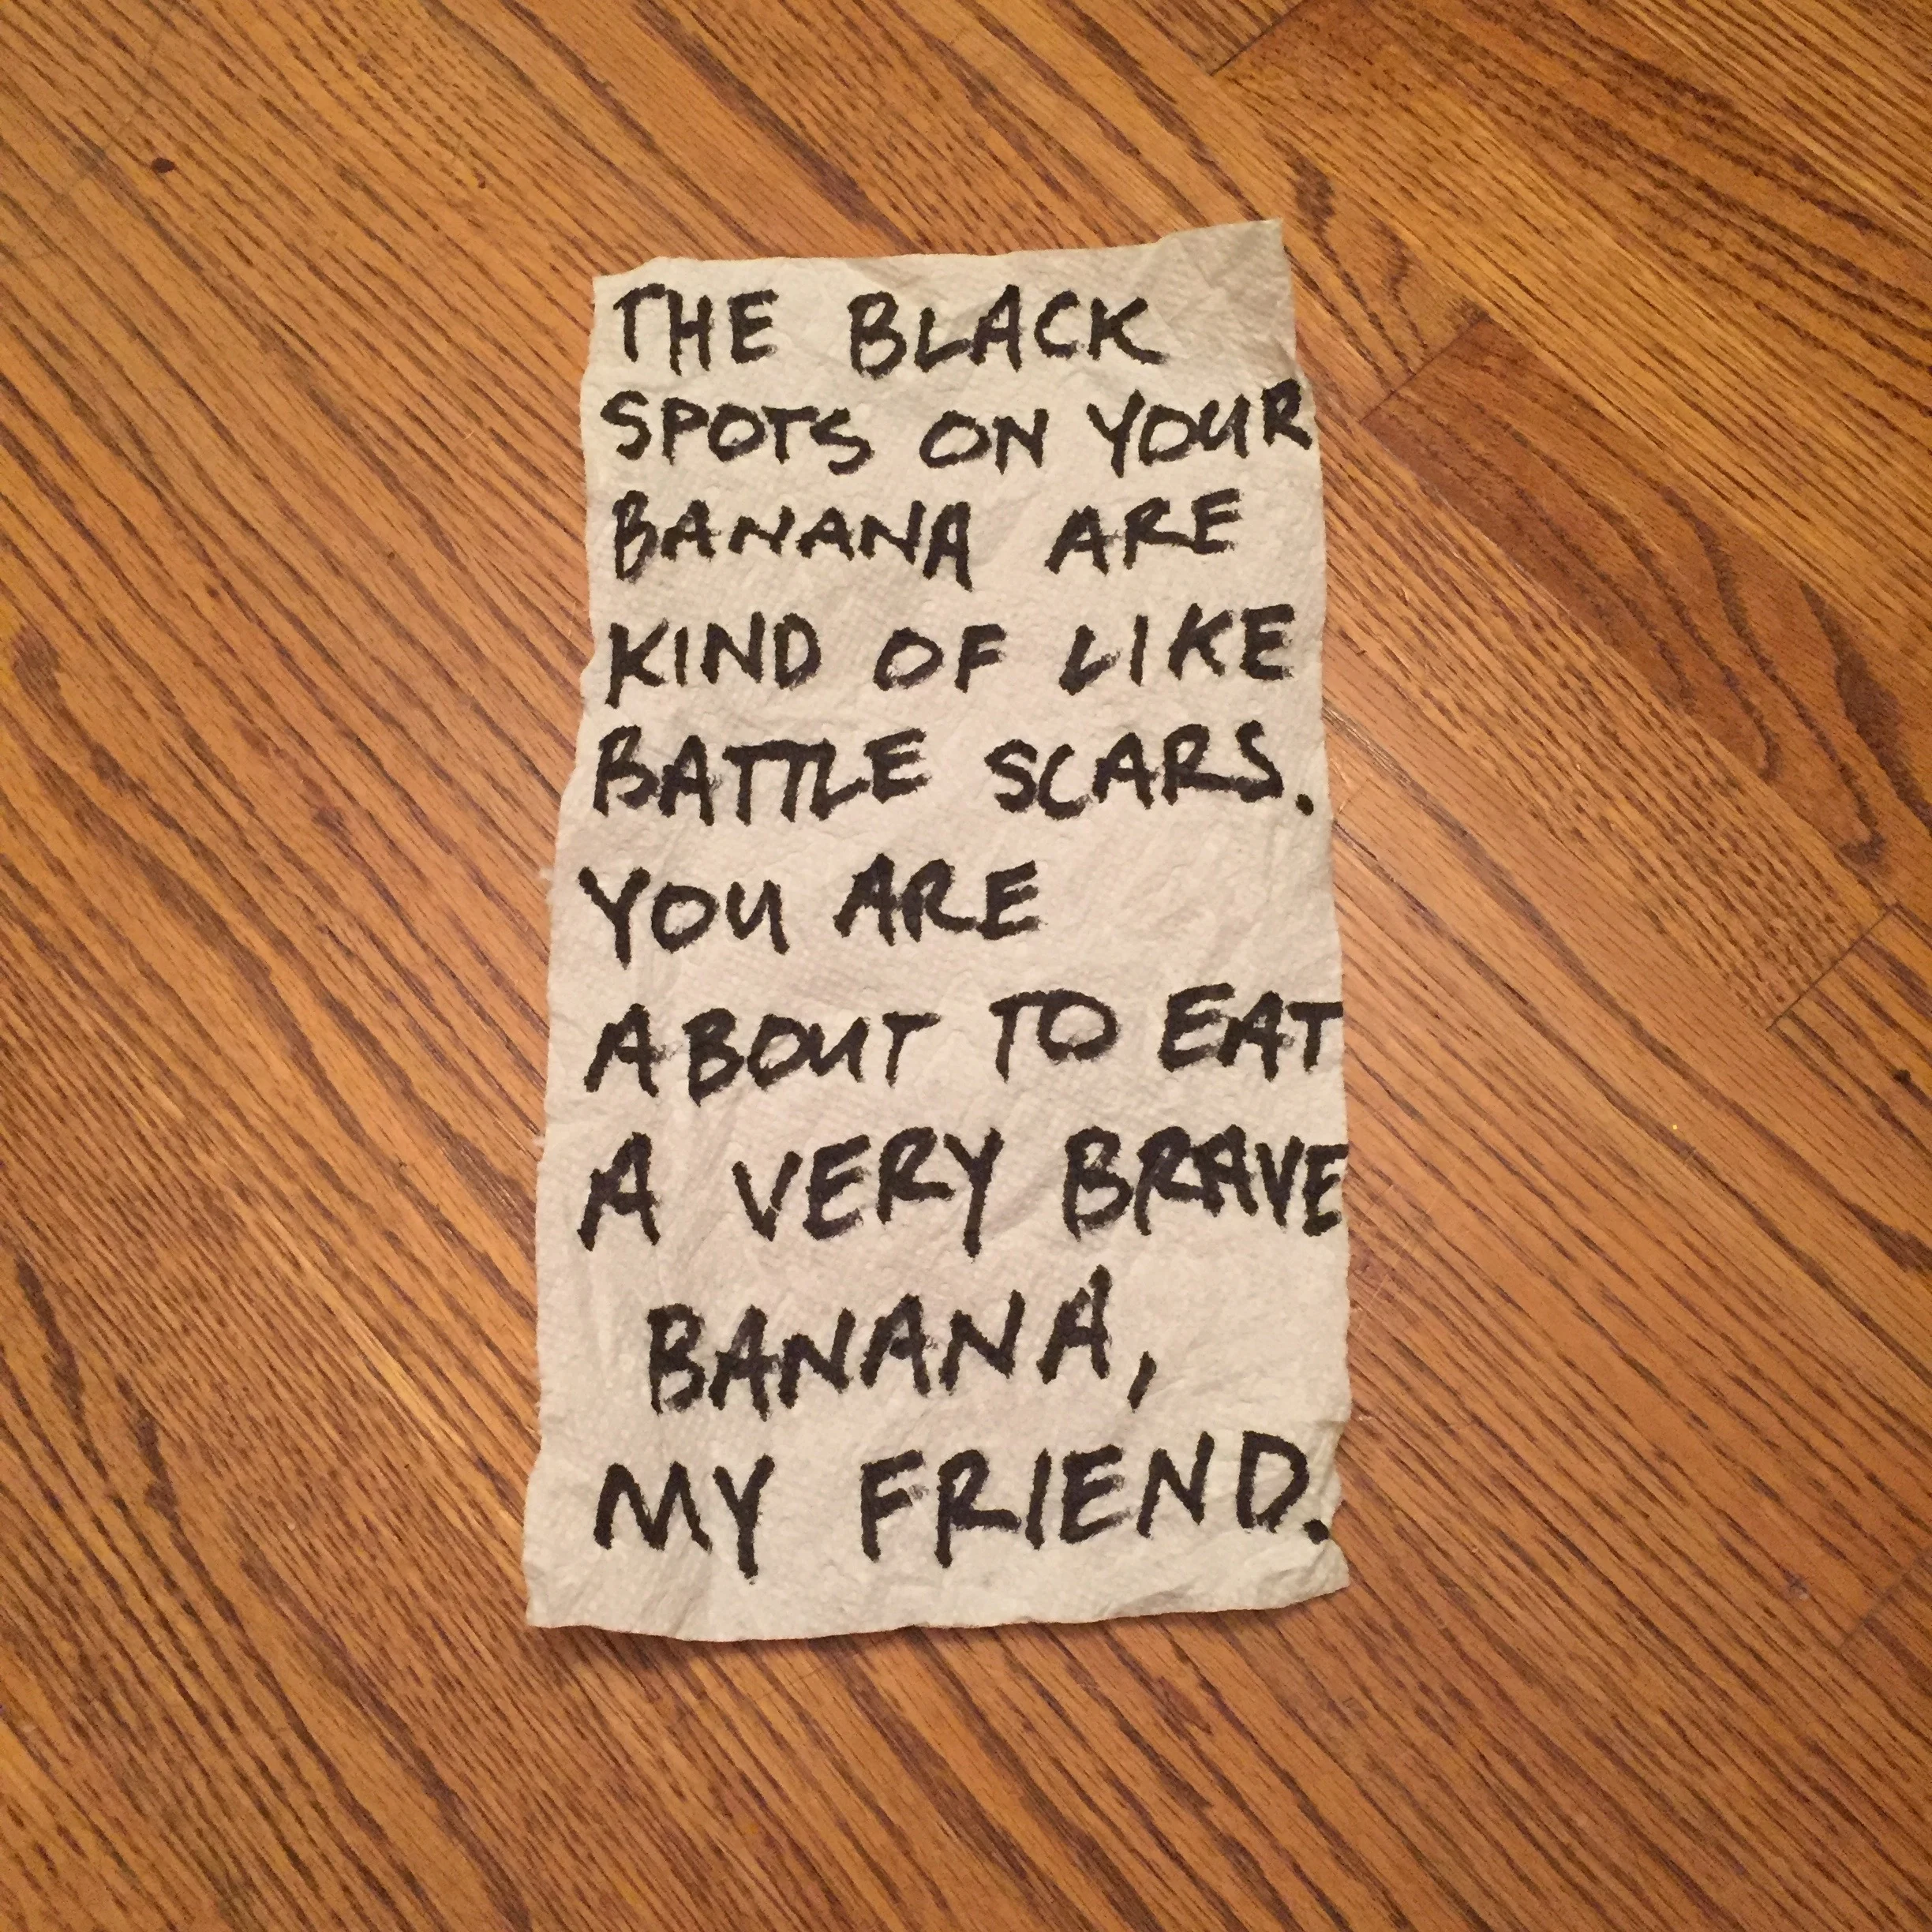 THE BLACK
SPOTS ON YOUR
BANANA ARE
KIND OF LIKE
BATTLE SCARS.
YOU ARE
ABOUT TO EAT
A VERY BRAVE
BANANA,
MY FRIEND.